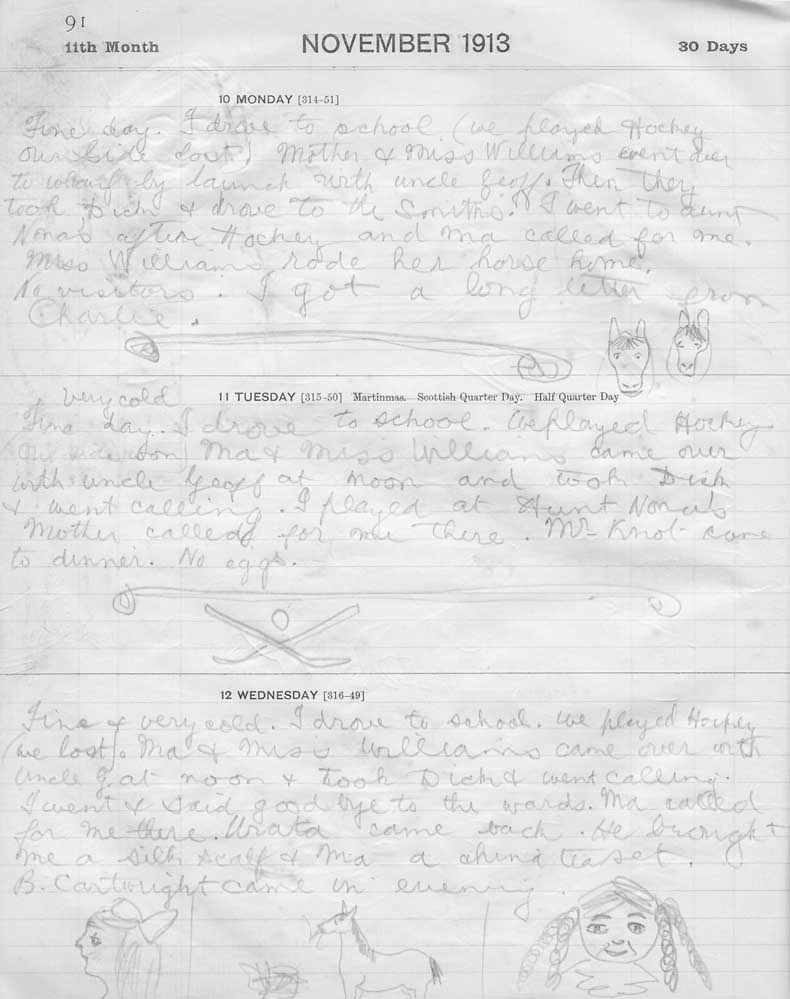 91
11th Month NOVEMBER 1913 30 Days
10 MONDAY [314–51]
Fine day. I drove to school (we played Hockey
our side lost) Mother & Miss Williams went over
to wharf by launch with uncle Geoff. Then they
took Dick & drove to the Smiths. I went to aunt
Nonas after Hockey and Ma called for me.
Miss Williams rode her horse home.
No visitors. I got a long letter from
Charlie.
very cold 11 TUESDAY [315-50] Martinmas. Scottish Quarter Day. Half Quarter Day
Fine day. I drove to school. We played Hockey
(our side won) Ma & Miss Williams came over
with uncle Geoff at noon and took Dick
& went calling. I played at Aunt Nona's
Mother called for me there. Mr Knot came
to dinner. No eggs.
12 WEDNESDAY [316–49]
Fine & very cold. I drove to school. We played Hockey
(we lost). Ma & Miss Williams came over with
Uncle G. at noon & took Dick & went calling.
I went & said good bye to the wards. Ma called
for me there. Urata came back. He brought
me a silk scarf & Ma a china tea set.
B. Cartwright came in evening.